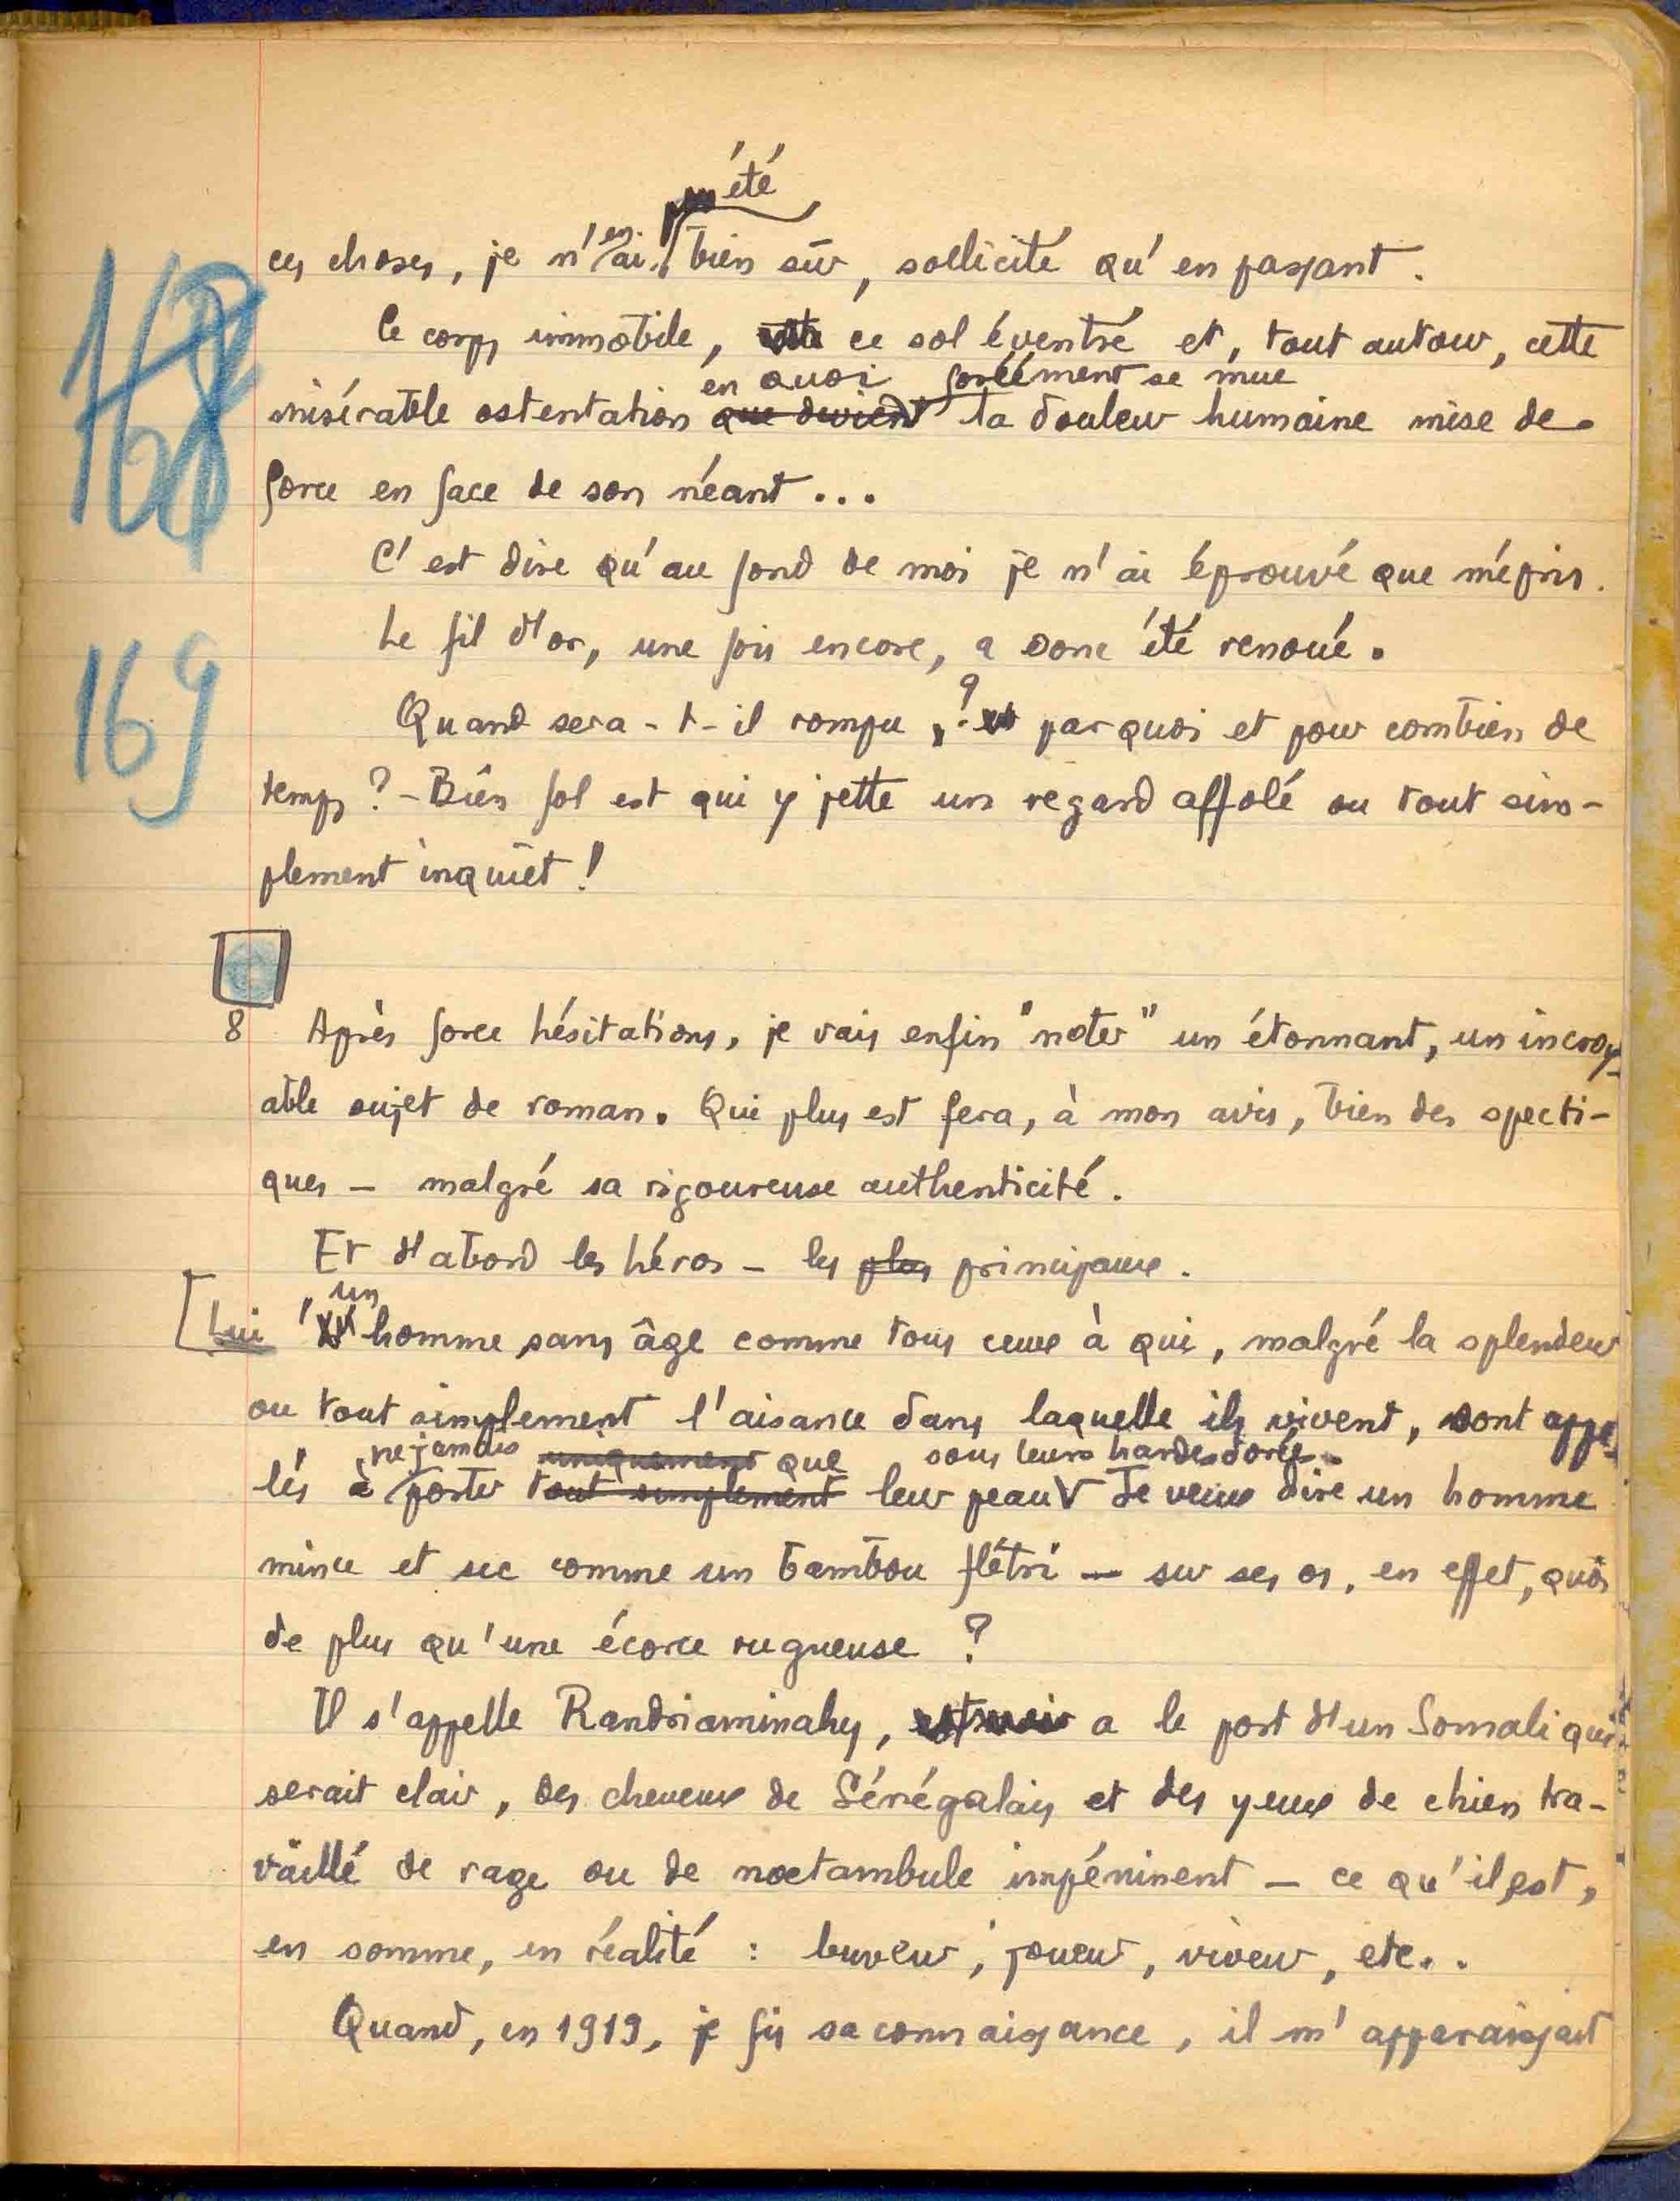 été
ces choses, je n'en ai, bien sûr, sollicité qu'en passant.
Ce corps immobile, ce sol éventré et, tout autour, cette
en quoi forcément se mue
misérable ostentation que devient la douleur humaine mise de
force en face de son néant...
C'est dire qu'au fond de moi je n'ai éprouvé que mépris.
Le fil d'or, une fois encore, a donc été renoué.
Quand sera-t-il rompu, ? et par quoi et pour combien de
temps ? - Bien fol est qui y jette un regard affolé ou tout sim-
plement inquiet !
168
169
8 Après force hésitations, je vais enfin "noter" un étonnant, un incroy-
able sujet de roman. Qui plus est fera, à mon avis, bien des specti-
ques — malgré sa rigoureuse authenticité.
Et d'abord les héros — les plus principaux.
un
[Lui homme sans âge comme tous ceux à qui, malgré la splendeur
ou tout simplement l'aisance dans laquelle ils vivent, sont appe-
ne jamais uniquement que sous leurs hardes dorées.
lés à porter tout simplement leur peau Je veux dire un homme
mince et sec comme un bambou flétri — sur ses os, en effet, quoi
de plus qu'une écorce rugueuse ?
Il s'appelle Randriaminahy, a le port d'un Somali qui
serait clair, des cheveux de Sénégalais et des yeux de chien tra-
vaillé de rage ou de noctambule impéninent — ce qu'il est,
en somme, en réalité : buveur, joueur, viveur, etc..
Quand, en 1919, je fis sa connaissance, il m'apparaissait